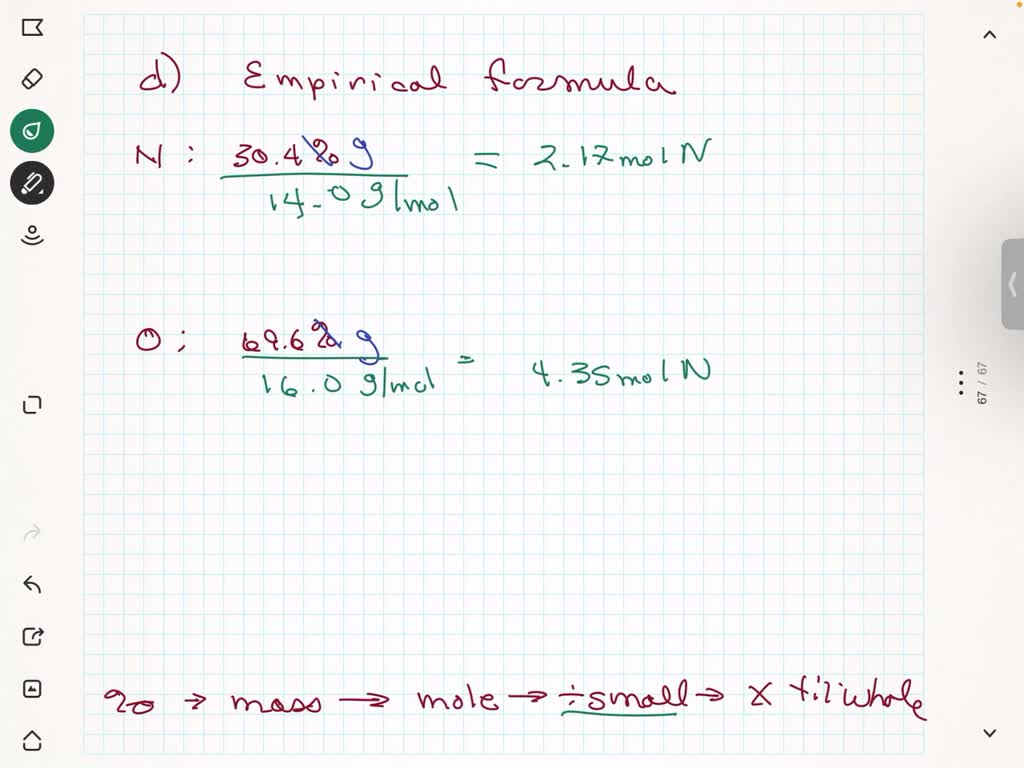 d) Empirical formula
N : 30.4% g = 2.17 mol N
14.0 g/mol
O ; 69.6% g = 4.35 mol N
16.0 g/mol
67 / 67
% → mass → mole → ÷ small → x til whole